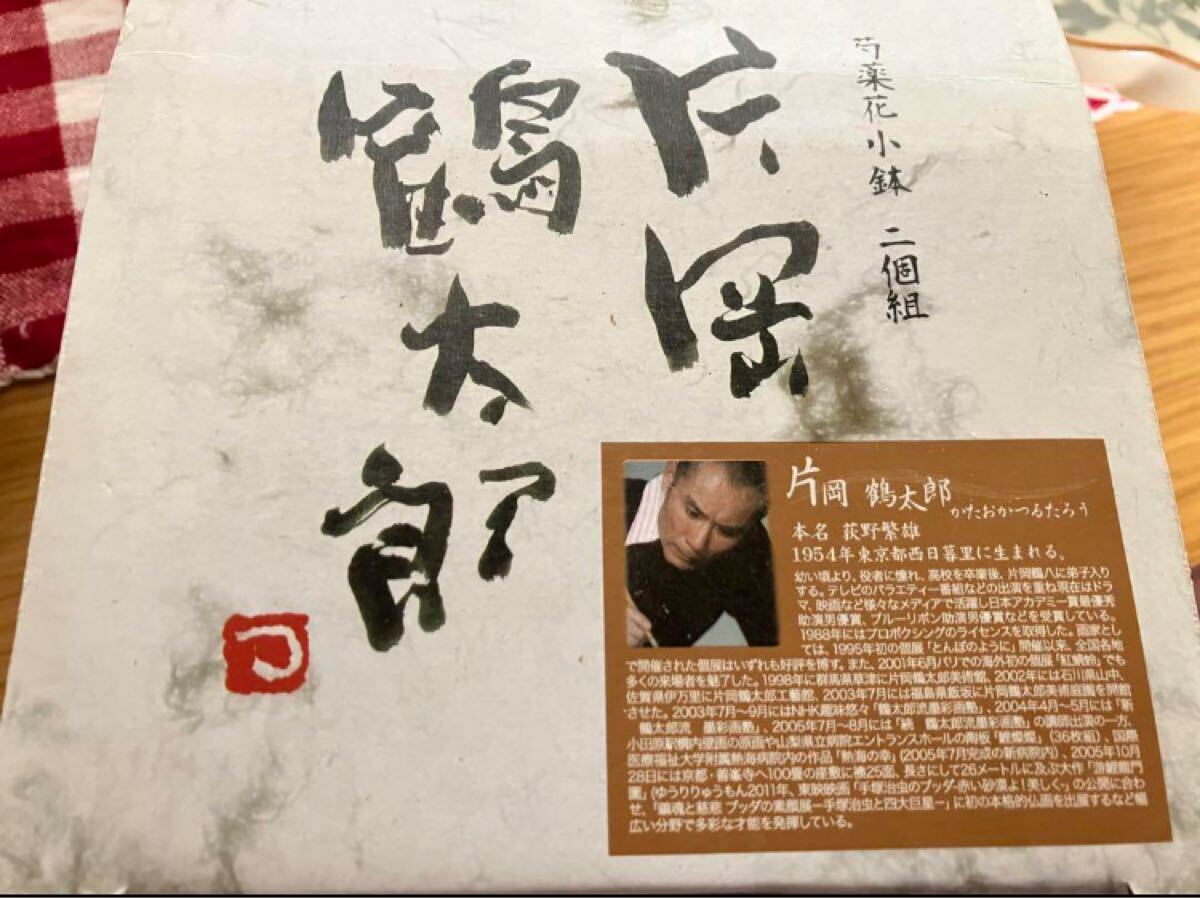 芍薬花小鉢 二個組
片岡
鶴太郎
つ
片岡 鶴太郎
かたおかつるたろう
本名 荻野繁雄
1954年東京都西日暮里に生まれる。
幼い頃より、役者に憧れ、高校を卒業後、片岡鶴八に弟子入り
する。テレビのバラエティー番組などの出演を重ね現在はドラ
マ、映画など様々なメディアで活躍し日本アカデミー賞最優秀
助演男優賞、ブルーリボン助演男優賞などを受賞している。
1988年にはプロボクシングのライセンスを取得した。画家とし
ては、1995年初の個展「とんぼのように」開催以来、全国各地
で開催された個展はいずれも好評を博す。また、2001年6月パリでの海外初の個展「紅蜻蛉」でも
多くの来場者を魅了した。1998年に群馬県草津に片岡鶴太郎美術館、2002年には石川県山中、
佐賀県伊万里に片岡鶴太郎工藝館、2003年7月には福島県飯坂に片岡鶴太郎美術庭園を開館
させた。2003年7月～9月にはNHK趣味悠々「鶴太郎流墨彩画塾」、2004年4月～5月には「新
鶴太郎流 墨彩画塾」、2005年7月～8月には「続 鶴太郎流墨彩画塾」の講師出演の一方、
小田原駅構内壁画の原画や山梨県立病院エントランスホールの陶板「鯉燦燦」（36枚組）、国際
医療福祉大学附属熱海病院内の作品「熱海の幸」（2005年7月完成の新病院内）、2005年10月
28日には京都・善峯寺へ100畳の座敷に襖25面、長さにして26メートルに及ぶ大作「游鯉龍門
圖」(ゆうりりゅうもん2011年、東映映画「手塚治虫のブッダ-赤い砂漠よ!美しく-」の公開に合わ
せ、「鎮魂と慈悲 ブッダの素顔展ー手塚治虫と四大巨星ー」に初の本格的仏画を出展するなど幅
広い分野で多彩な才能を発揮している。